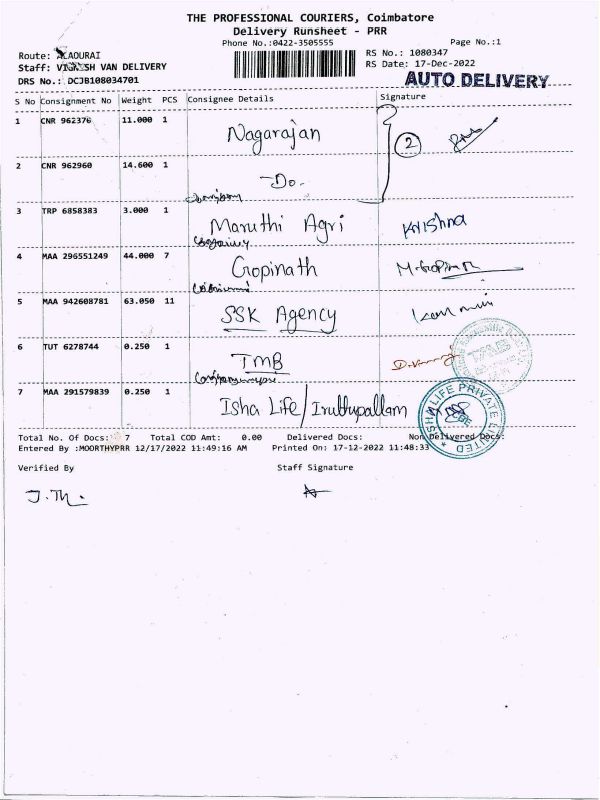 THE PROFESSIONAL COURIERS, Coimbatore
Delivery Runsheet - PRR
Phone No.:0422-3505555 Page No.:1
Route: ALAOURAI RS No.: 1080347
Staff: VIGNESH VAN DELIVERY RS Date: 17-Dec-2022
DRS No.: DCJB108034701 AUTO DELIVERY
S No Consignment No Weight PCS Consignee Details Signature
1 CNR 962376 11.000 1 Nagarajan 2
2 CNR 962960 14.600 1 -Do-
3 TRP 6858383 3.000 1 Maruthi Agri Krishna
4 MAA 296551249 44.000 7 Gopinath M. Gopinath
5 MAA 942608781 63.050 11 SSK Agency
6 TUT 6278744 0.250 1 TMB
7 MAA 291579839 0.250 1 Isha Life/Iruttupallam
ISHA LIFE PRIVATE LIMITED CBE
Total No. Of Docs: 7 Total COD Amt: 0.00 Delivered Docs: Non Delivered Docs:
Entered By :MOORTHYPRR 12/17/2022 11:49:16 AM Printed On: 17-12-2022 11:48:33
Verified By Staff Signature